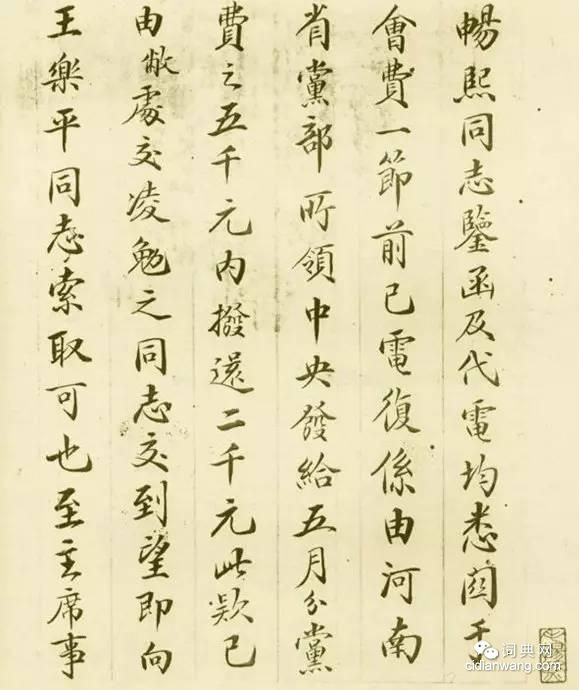 暢熙同志鑒函及代電均悉關于
會費一節前已電復係由河南
省黨部所領中央發給五月分黨
費之五千元內撥還二千元此款已
由敝處交凌勉之同志交到望即向
王樂平同志索取可也至主席事
词典网
cidianwang.com